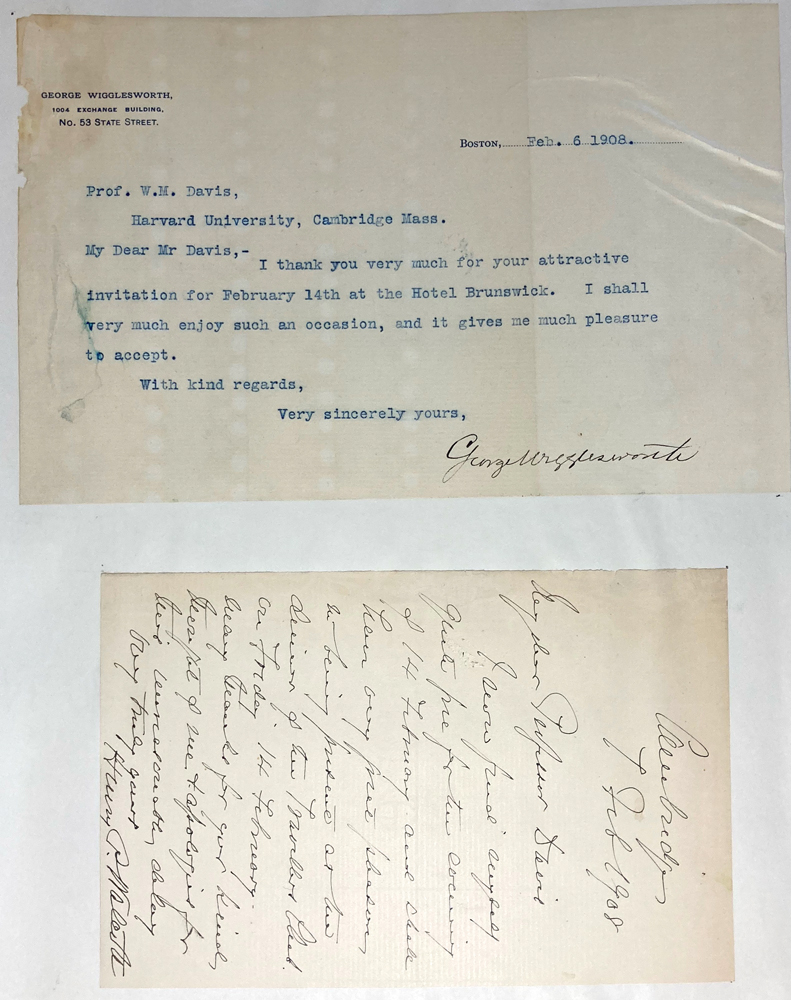 GEORGE WIGGLESWORTH,
1004 EXCHANGE BUILDING,
No. 53 STATE STREET.
BOSTON, Feb. 6 1908.
Prof. W.M. Davis,
Harvard University, Cambridge Mass.
My Dear Mr Davis,-
I thank you very much for your attractive
invitation for February 14th at the Hotel Brunswick. I shall
very much enjoy such an occasion, and it gives me much pleasure
to accept.
With kind regards,
Very sincerely yours,
George Wigglesworth
Cambridge
7 Feb 1908
My dear Professor Davis
I now find myself
quite free for the evening
of 14 February and shall
have very great pleasure
in being present at the
dinner of the Travellers Club.
on Friday 14 February.
Many thanks for your kind
of me & apologies for
this unseasonable delay
Very truly yours
Henry P. Walcott